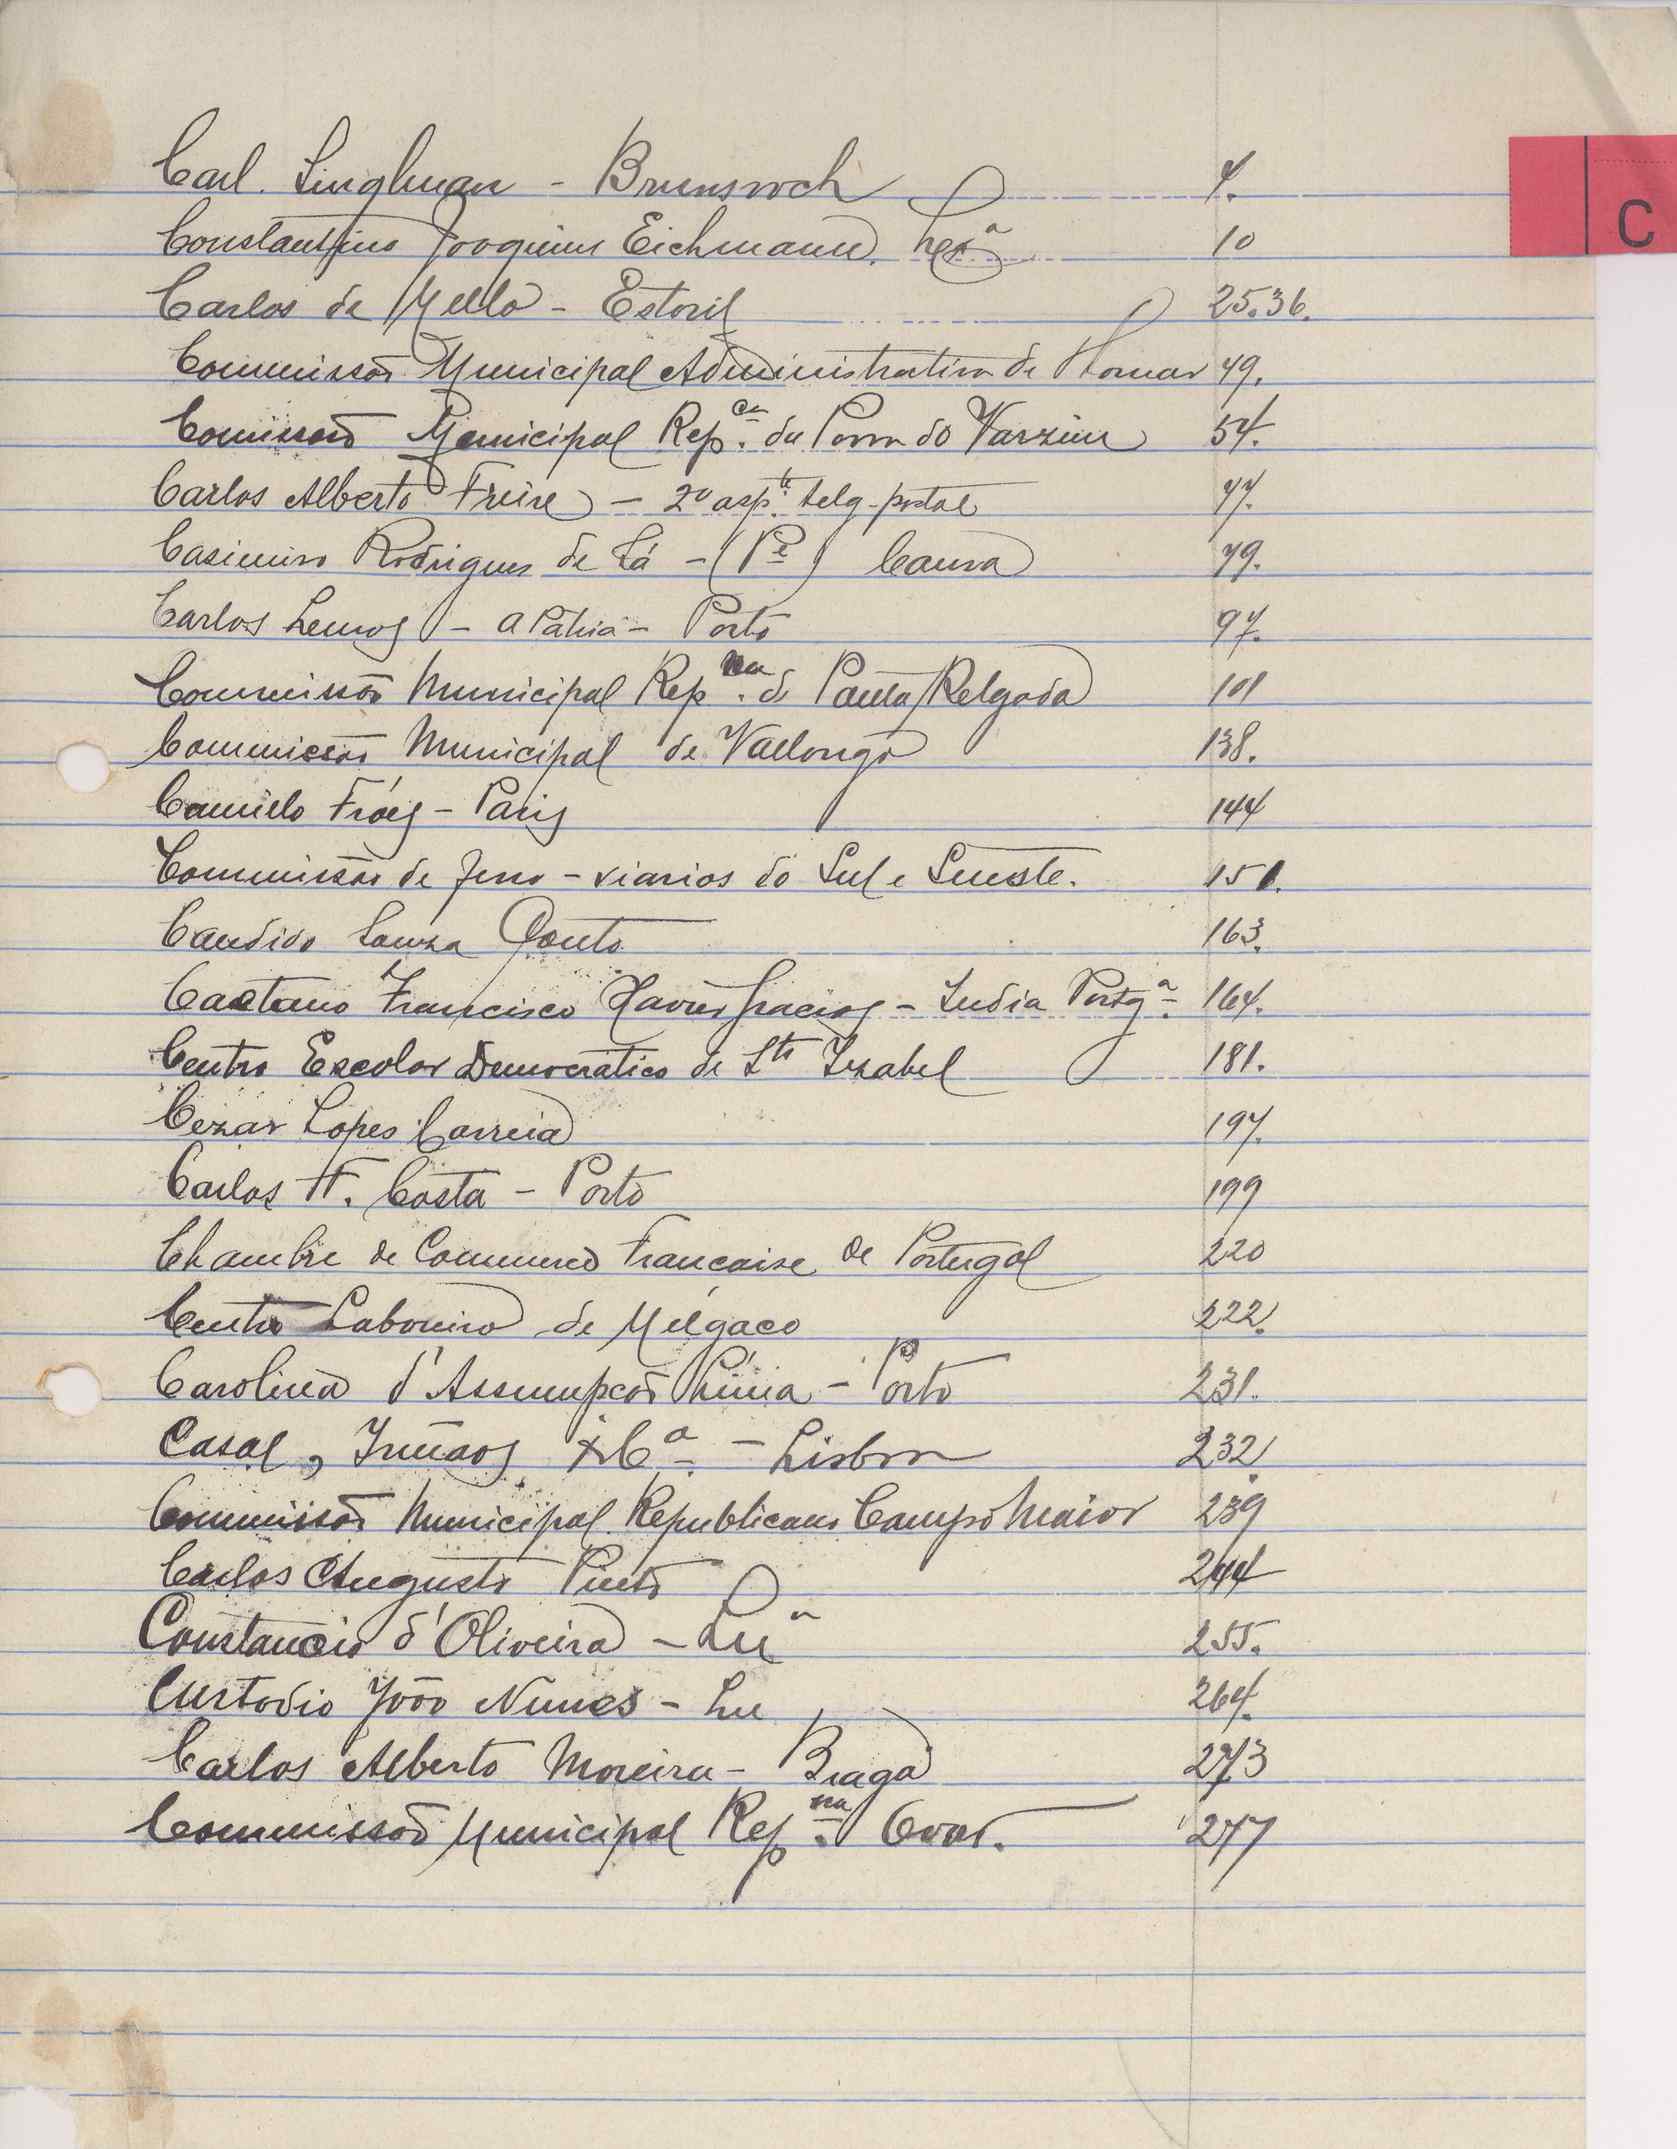 C
Carl. Singlman - Brunswch 7.
Constantino Joaquim Eichmann. Lxª 10
Carlos de Mello - Estoril 25.36.
Commissão Municipal Administrativa de Thomar 49.
Comissão Municipal Rep.cª da Povoa do Varzim 54.
Carlos Alberto Freire - 2º asp.te telg-postal 77.
Casimiro Rodrigues de Sá - (Pe) Caura 79.
Carlos Lemos - a Patria - Porto 97.
Commissão Municipal Rep.na de Ponta Delgada 101
Commissão Municipal de Vallongo 138.
Camillo Fróes - Paris 144
Commissão de ferro-viarios do Sul e Sueste. 151.
Candido Souza Couto 163.
Caetano Francisco Xavier Gracias - India Portgª 164.
Centro Escolar Democratico de Stª Izabel 181.
Cezar Lopes Correia 197.
Carlos F. Costa - Porto 199
Chambre de Commerce Francaise de Portugal 220
Centro Laboreiro de Melgaço 222.
Carolina d'Assumpção Lima - Porto 231.
Casal, Irmãos & Cª - Lisboa 232.
Commissão Municipal Republicana Campo Maior 239
Carlos Augusto Pinto 244
Constancio d'Oliveira - 255.
Custodio João Nunes - 264.
Carlos Alberto Moreira - Braga 273
Commissão Municipal Rep.na Ovar. 277